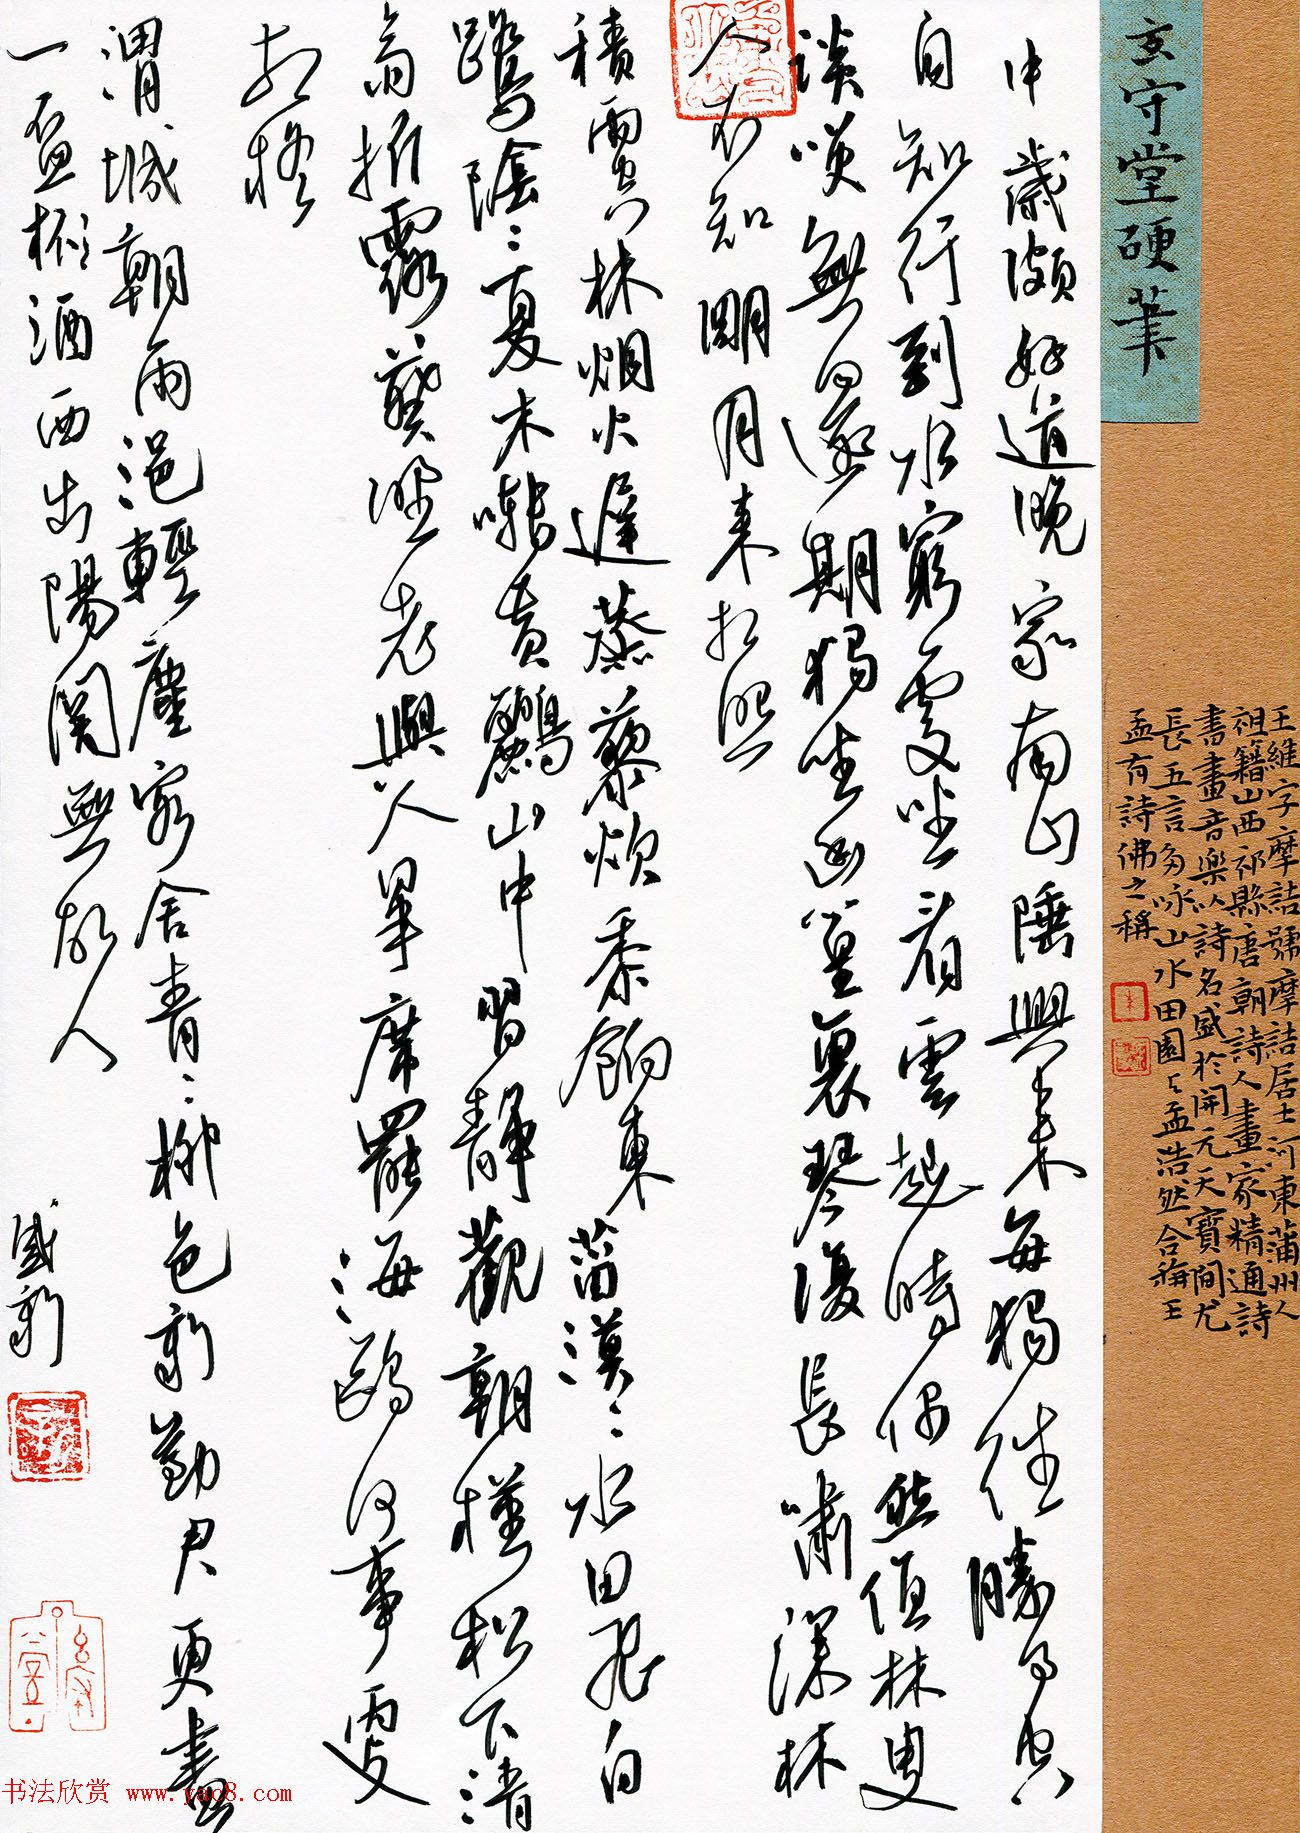 玄守堂硬筆
王維字摩詰號摩詰居士河東蒲州人
祖籍山西祁縣唐朝詩人畫家精通詩
書畫音樂以詩名盛於開元天寶間尤
長五言多咏山水田園与孟浩然合稱王
孟有詩佛之稱
中歲頗好道晚家南山陲興来每獨往勝事空
自知行到水窮處坐看雲起時偶然值林叟
談咲無還期獨坐幽篁裏琴復長嘯深林
人不知明月来相照
積雨空林烟火遲蒸藜炊黍餉東菑漠々水田飛白
鷺陰々夏木囀黄鸝山中習靜觀朝槿松下清
齋折露葵野老與人爭席罷海鷗何事更
相疑
渭城朝雨浥輕塵客舍青々柳色新勸君更盡
一盃杯酒西出陽関無故人
盛新
书法欣赏 www.yac8.com